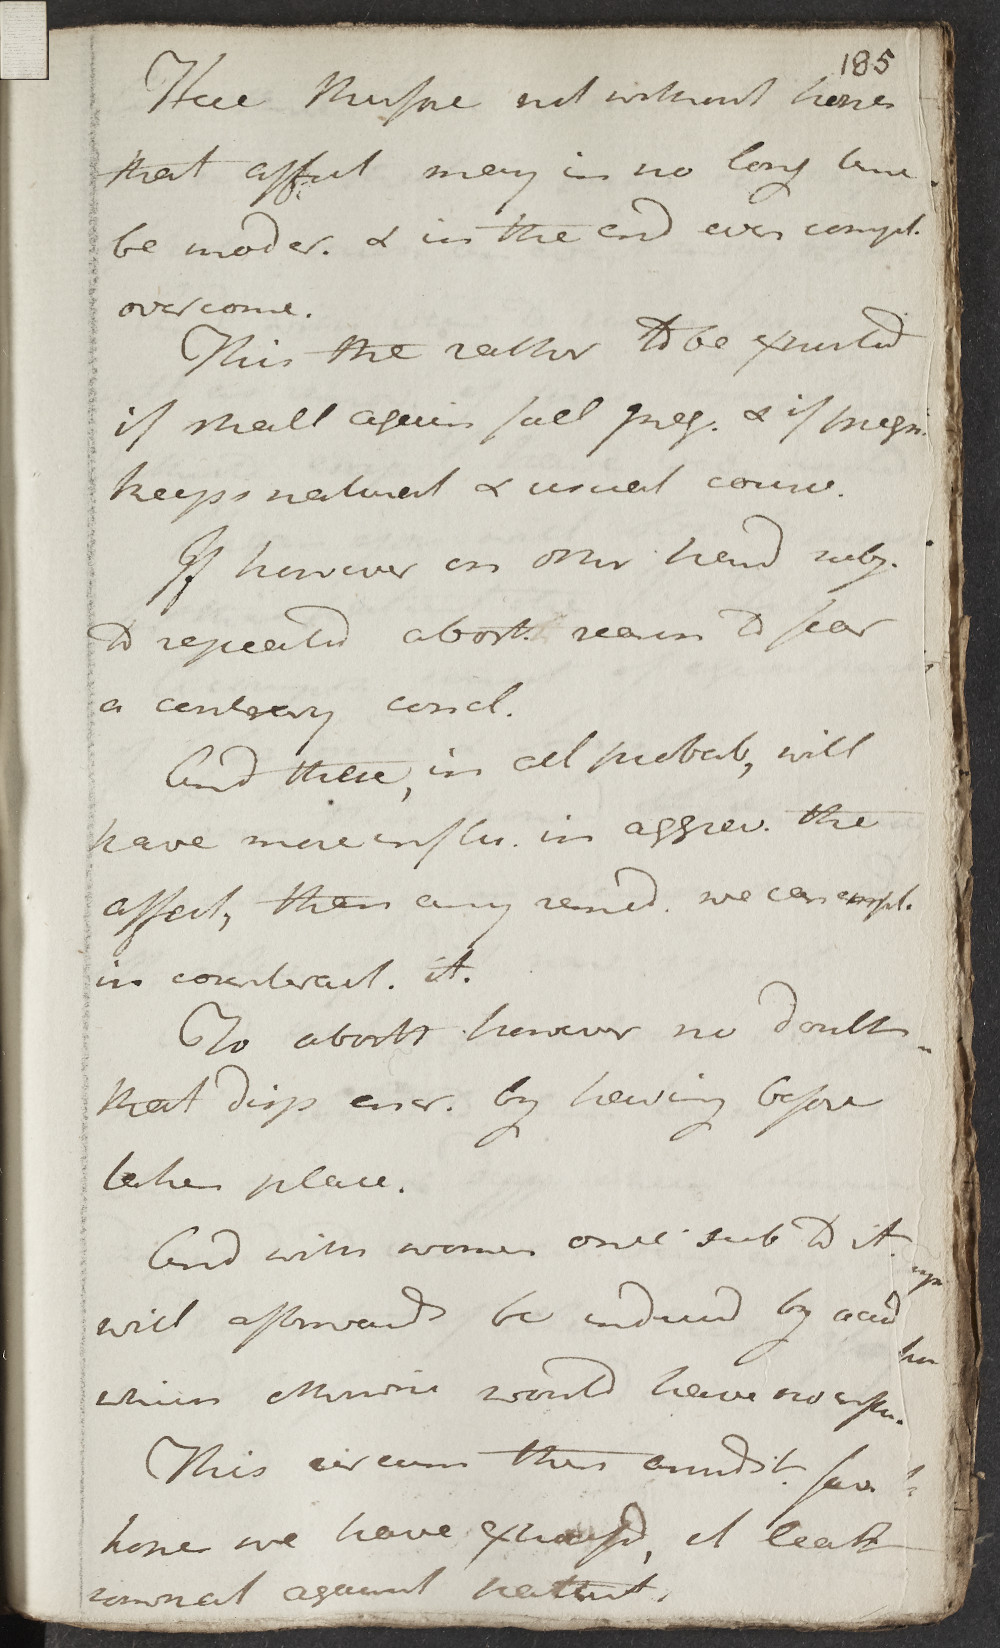 185
Have therefore not without hopes
that affect may in no long time
be moder. & in the end even compl.
overcome.
This the rather to be expected
if shall again fall preg. & if pregn.
keeps natural & usual course.
If however on other hand subj.
to repeated abort. reason to fear
a contrary concl.
And these, in all probab, will
have more influ. in aggrav. the
affect, than any remed. we can empl.
in counteract. it.
To abortt however no doubt
that disp incr. by having before
taken place.
And with women once sub to it
will afterwards be induced by accid
which otherwise would have no influ.
This circum then amidst. fav
hopes we have expressed, at least
somewhat against patient.